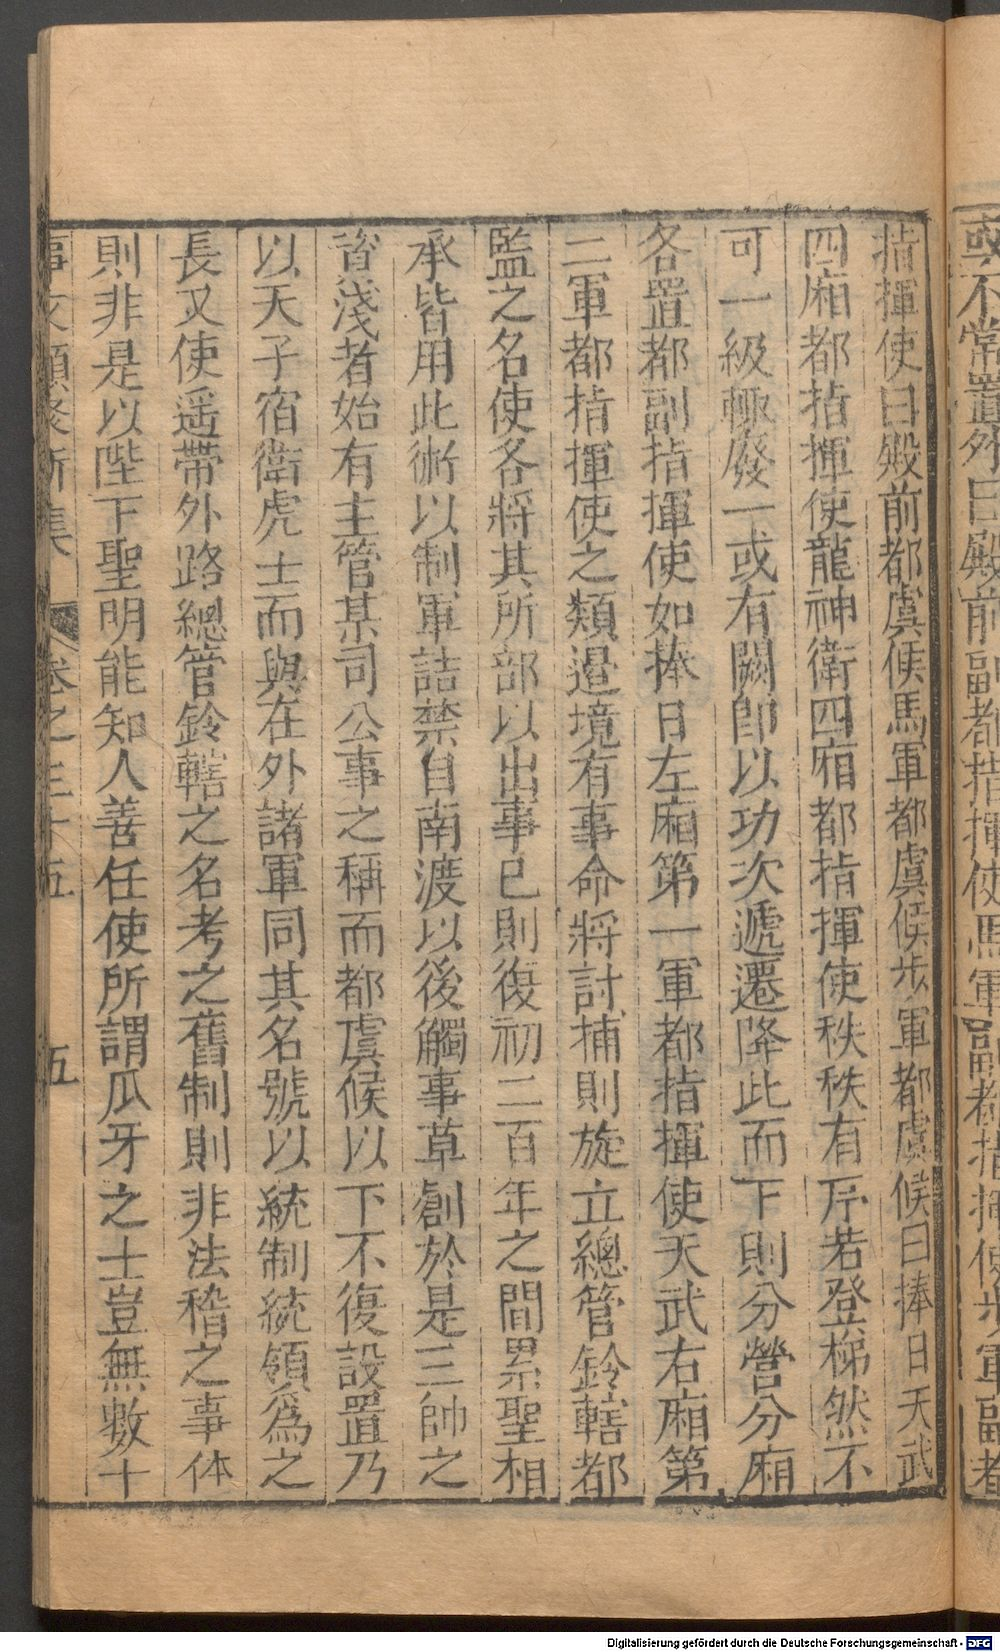 或不常置外曰殿前副都指揮使馬軍副都指揮使步軍副都
指揮使曰殿前都虞候馬軍都虞候步軍都虞候曰捧日天武
四廂都指揮使龍神衛四廂都指揮使秩秩有序若登梯然不
可一級輒廢一或有闕即以功次遞遷降此而下則分營分廂
各置都副指揮使如捧日左廂第一軍都指揮使天武右廂第
二軍都指揮使之類邉境有事命將討捕則旋立總管鈐轄都
監之名使各將其所部以出事已則復初二百年之間累聖相
承皆用此術以制軍詰禁自南渡以後觸事草創於是三帥之
資淺者始有主管某司公事之稱而都虞候以下不復設置乃
以天子宿衛虎士而與在外諸軍同其名號以統制統領爲之
長又使遥帶外路總管鈐轄之名考之舊制則非法稽之事体
則非是以陛下聖明能知人善任使所謂瓜牙之士豈無數十
事文類聚新集 卷之三十五 五
Digitalisierung gefördert durch die Deutsche Forschungsgemeinschaft - DFG